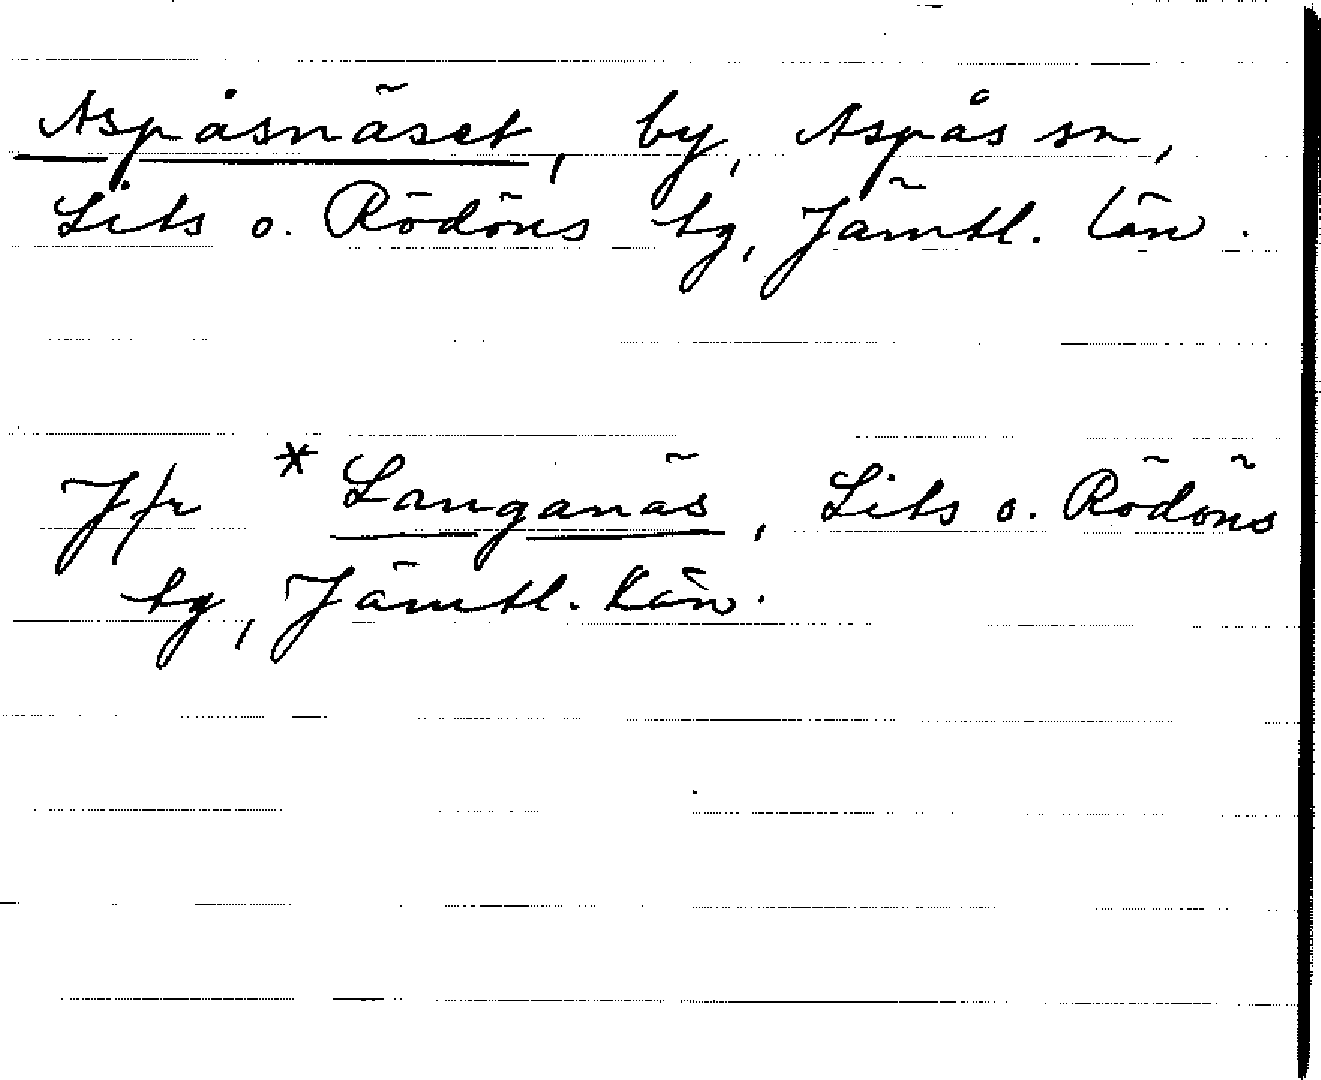 Aspåsnäset, by, Aspås sn,
Lits o. Rödöns tg, Jämtl. län.
Jfr *Langanäs, Lits o. Rödöns
tg, Jämtl. län.